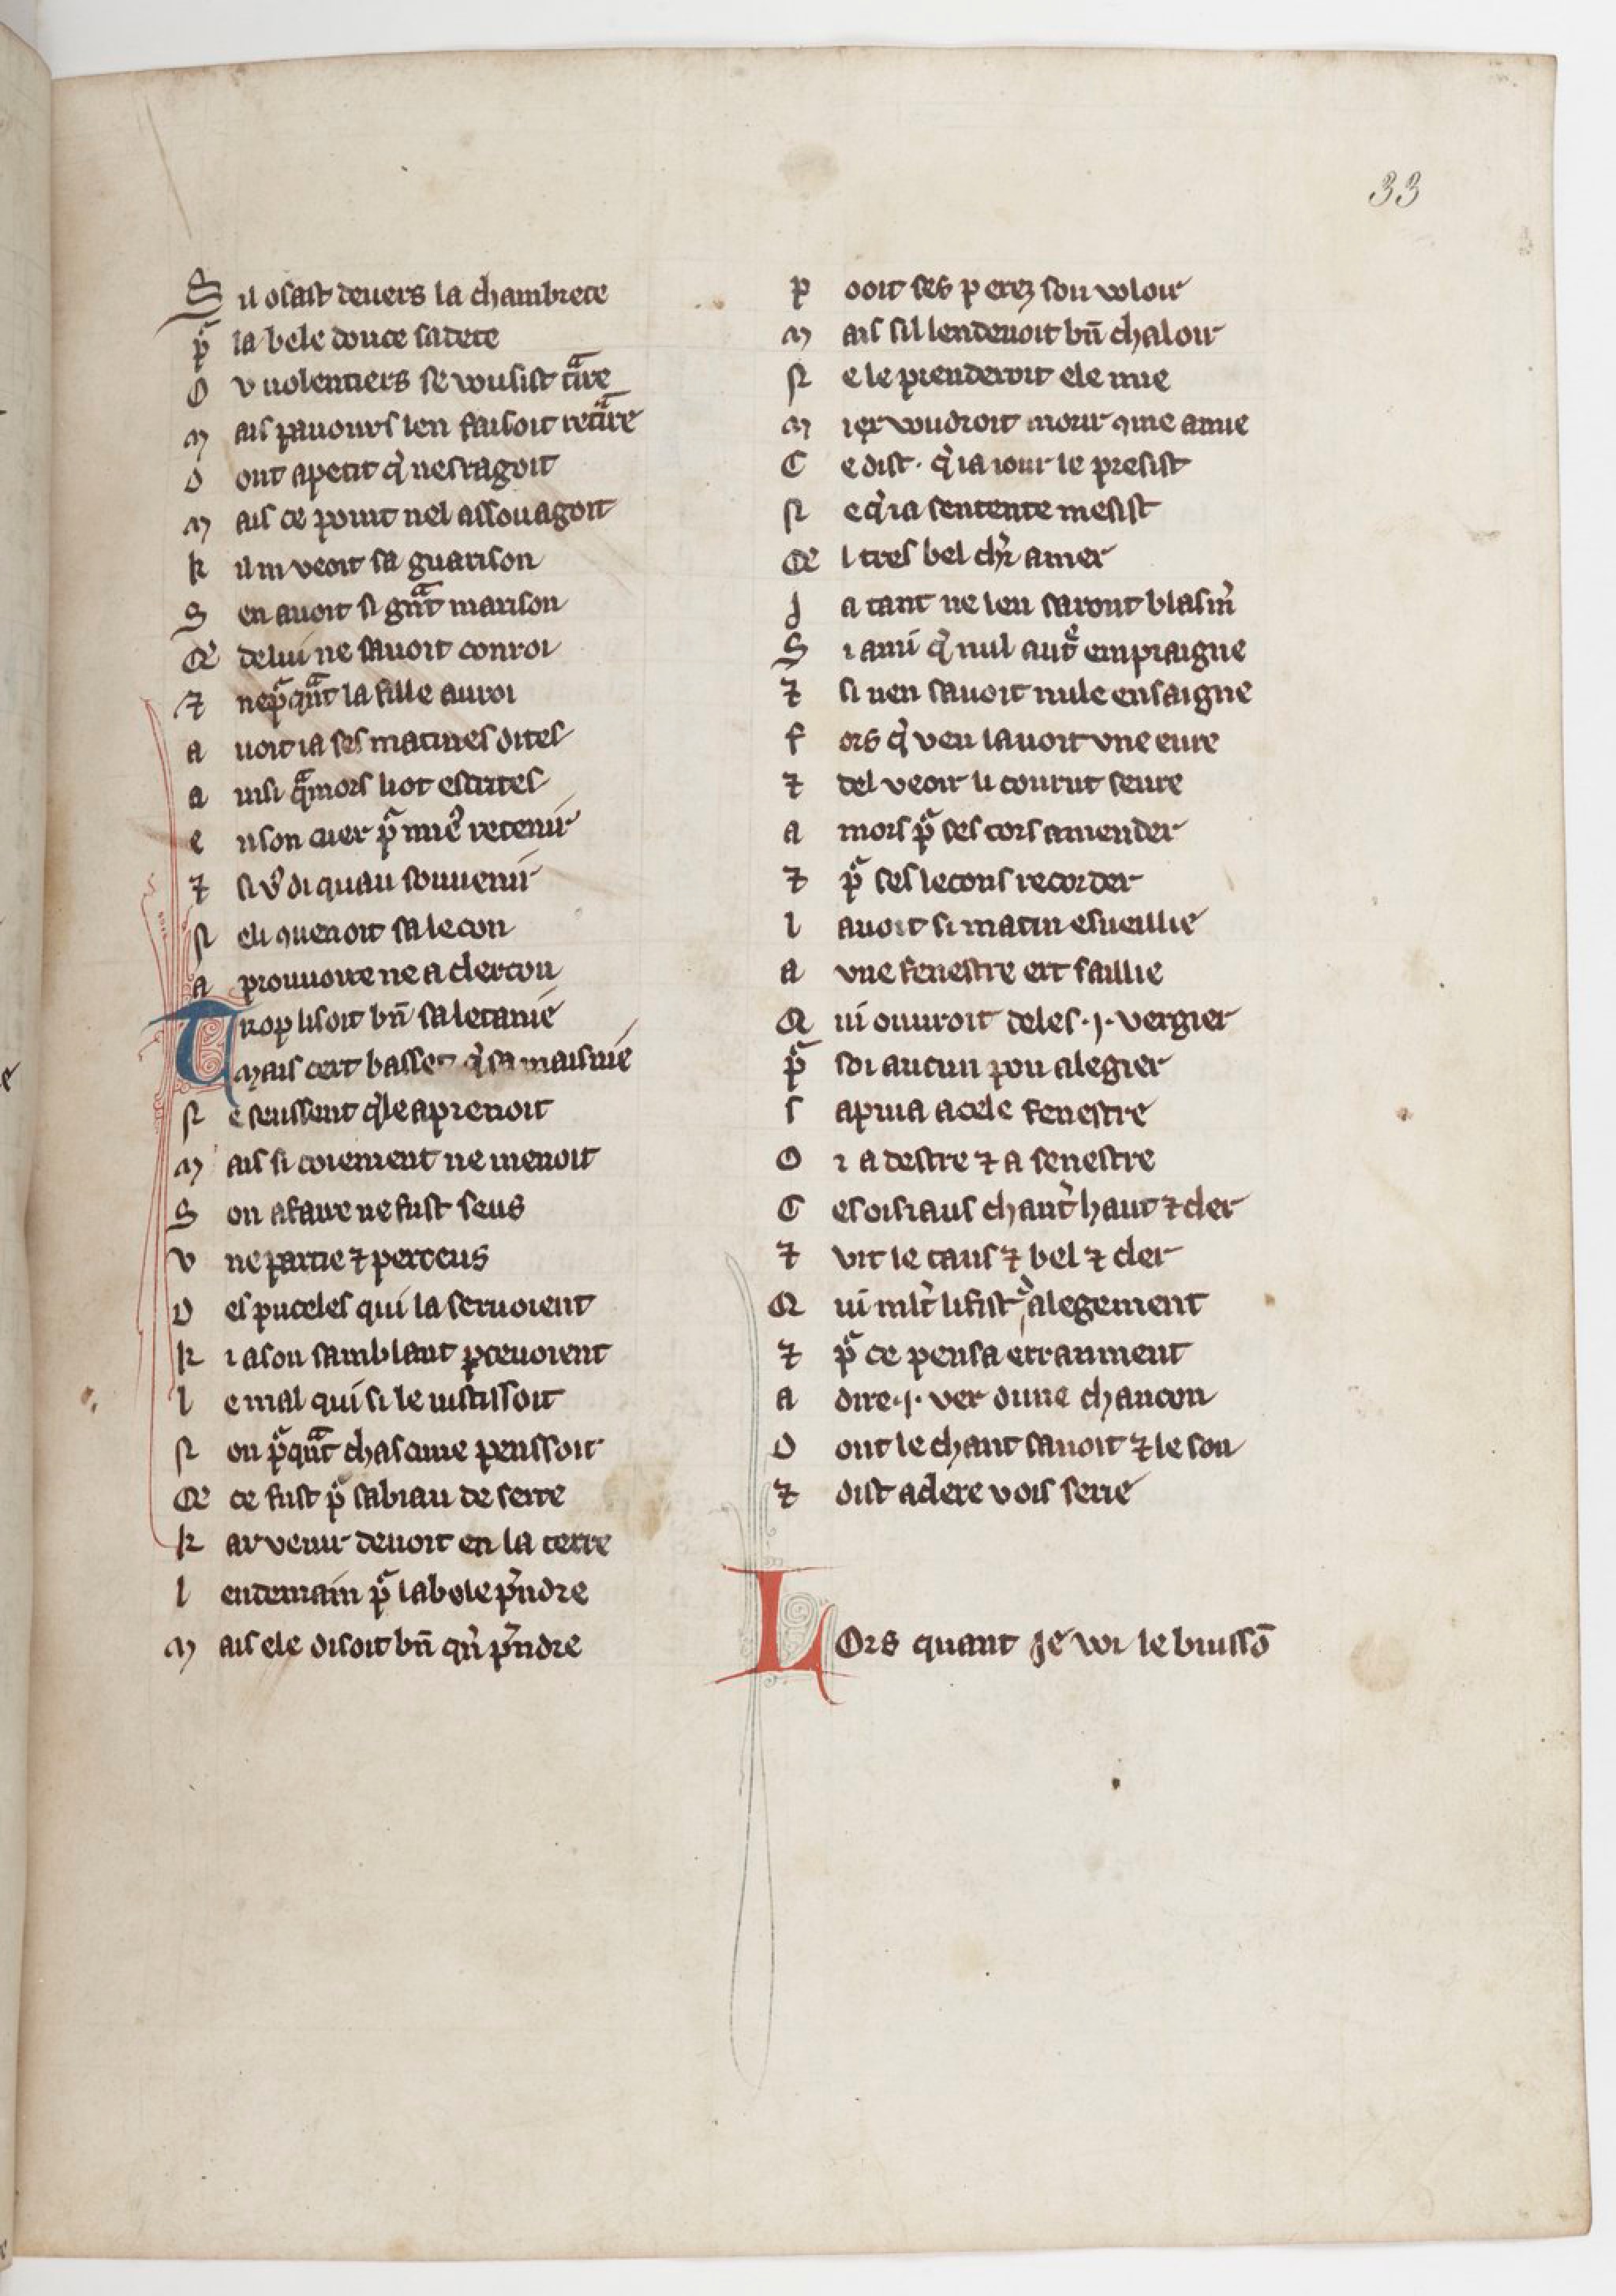 33
S il osast deuers la chambrete
pᵃ la bele douce sadete
O v uolentiers se vousist tᵃire
M ais paours len faisoit retᵃire
D ont a petit qͥ nesragoit
M ais ce point nel assouagoit
K il ni veoit sa guarison
S en auoit si gnᵃt marison
Q̃ de lui ne sauoit conroi
⁊ nepᵃqᵃnt la fille au roi
a uoit ia ses matines dites
a insi qᵃmors li ot escrites
e n son cuer pᵃ miex retenir
⁊ si vͦ di quau souuenir
N e li ꝯuenoit sa lecon
a prouuoire ne a clercon
Trop lisoit bn̄ sa letanie
Mais cert basset qͥ sa maisnie
N e seussent qͥle aprenoit
M ais si coiement ne menoit
S on afaire ne fust seus
V ne partie ⁊ perceus
D es puceles qui la seruoient
K i a son samblant ꝑceuoient
l e mal qui si le iustissoit
N on pᵃqᵃnt chascune penssoit
Q̃ ce fust pᵃ sabrau de serre
K ar venir deuoit en la terre
l endemain pᵃ la bele pͬndre
M ais ele disoit bn̄ qͥ pͬndre
P ooit ses perez son voloir
M ais sil len deuoit bn̄ chaloir
N e le prenderoit ele mie
M iex voudroit morir ꝯme amie
C e dist· qͥ ia iour le presist
N e qͥ ia sentente mesist
Q̃ l tres bel chͬi amer
J a tant ne len saront blasmͬ
S i ami qͥ nul autͤ empraigne
⁊ si nen sauoit nule ensaigne
f ors qͥ veu lauoit vne eure
⁊ del veoir li courut seure
a mors pᵃ ses cors amender
⁊ pᵃ ses lecons recorder
l auoit si matin esueillie
a vne fenestre ert saillie
Q ui ouuroit deles ·j· vergier
pᵃ soi aucun pou alegier
s apuia a cele fenestre
O i a destre ⁊ a senestre
C es oisiaus chantͬ haut ⁊ cler
⁊ vit le tans ⁊ bel ⁊ cler
Q ui ml̄t li fist gͣ alegement
⁊ pᵃ ce pensa erranment
a dire ·j· ver dune chancon
D ont le chant sauoit ⁊ le son
⁊ dist a clere vois serie
LOrs quant je voi le buissō